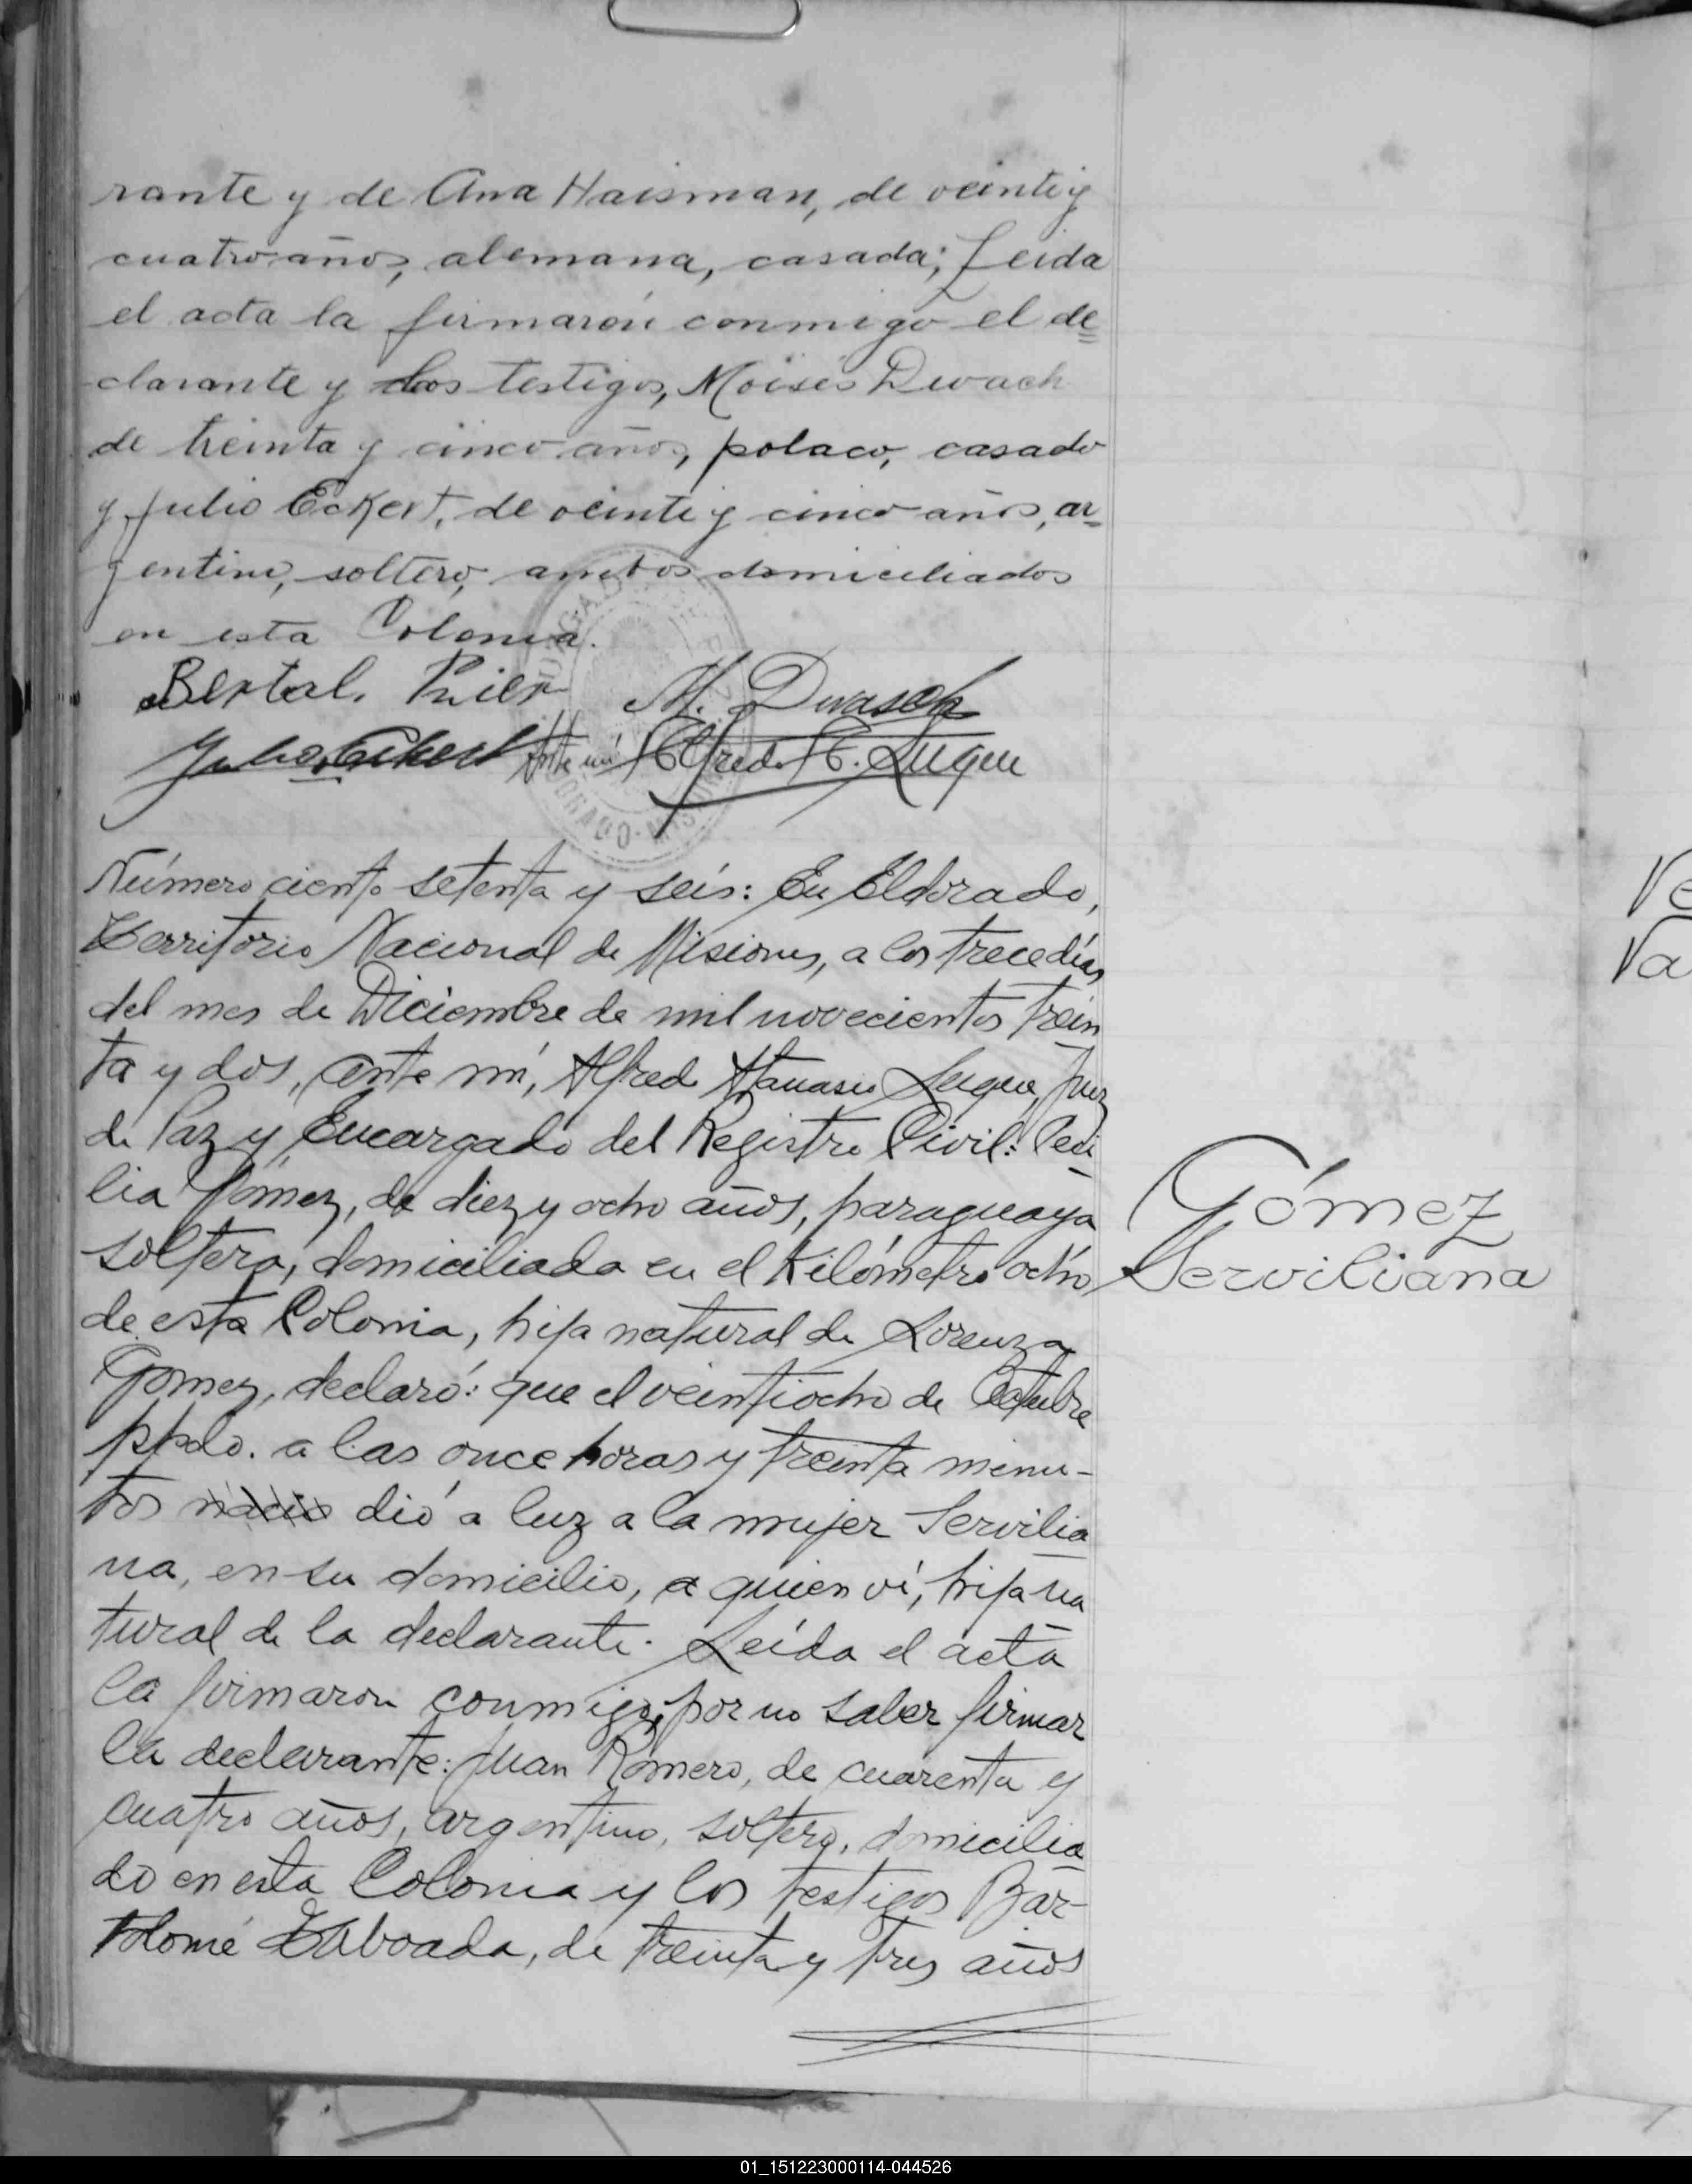 rante y de Ana Haisman, de veinte y
cuatro años, alemana, casada; Leida
el acta la firmarón conmigo el de=
clarante y los testigos, Moisés Dwach
de treinta y cinco años, polaco, casado
y Julio Eckert, de veinte y cinco años, ar=
gentino, soltero, ambos domiciliados
en esta Colonia.
Bertal. M. Dwasch
Julio Eckert Ante mí Alfredo A. Luque
Número ciento setenta y seis: En Eldorado,
Territorio Nacional de Misiones, a los trece días
del mes de Diciembre de mil novecientos trein
ta y dos, ante mí, Alfredo Atanasio Luque, Juez
de Paz y Encargado del Registro Civil: Ceci
lia Gómez, de diez y ocho años, paraguaya
soltera, domiciliada en el Kilómetro ocho
de esta Colonia, hija natural de Lorenza
Gomez, declaró: que el veintiocho de Octubre
ppdo. a las once horas y treinta minu-
tos nació dió a luz a la mujer Servilia
na, en su domicilio, a quien ví, hija na
tural de la declarante. Leída el acta
la firmaron conmigo, por no saber firmar
la declarante: Juan Romero, de cuarenta y
cuatro años, argentino, soltero, domicilia
do en esta Colonia y los testigos Bar-
tolomé Taboada, de treinta y tres años
Gómez
Serviliana
Ve
Va
01_151223000114-044526